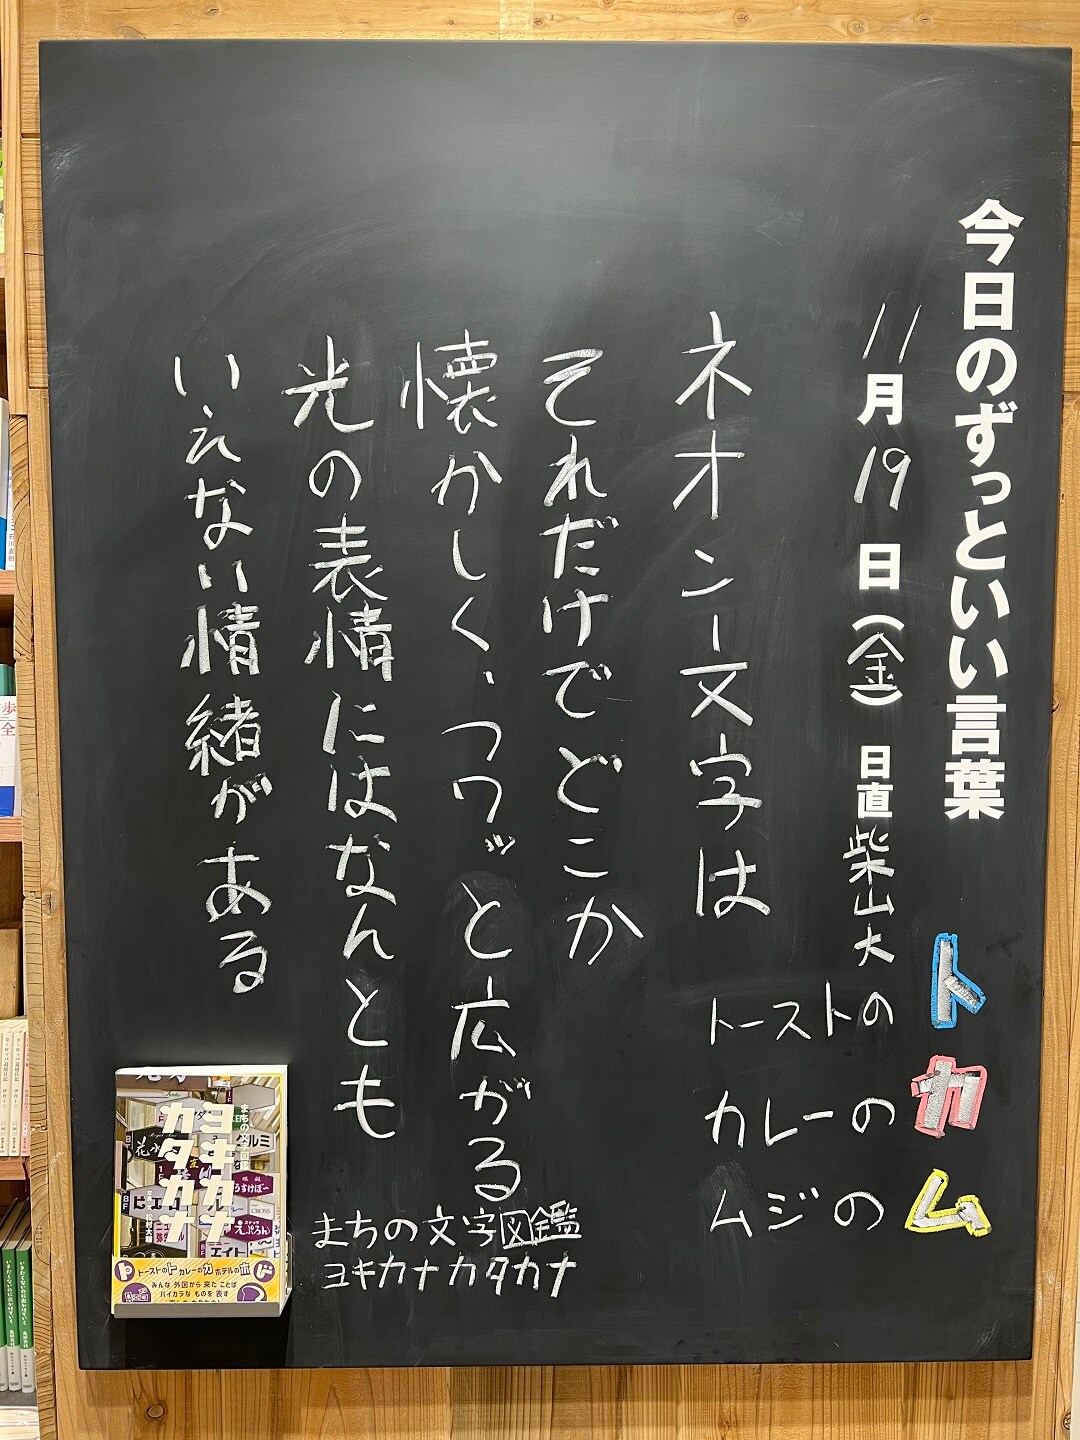 今日のずっといい言葉
11月19日(金) 日直 柴山大
トーストのト
カレーのカ
ムジのム
ネオン文字は
それだけでどこか
懐かしく、フワッと広がる
光の表情にはなんとも
いえない情緒がある
まちの文字図鑑
ヨキカナカタカナ
ヨキカナ
カタカナ
トーストのト カレーのカ ホテルのホ
みんな 外国から 来た ことば
ハイカラな ものを 表す